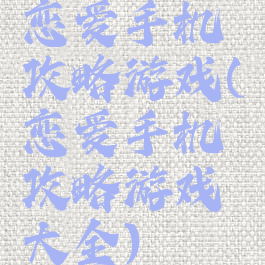 恋爱手机
攻略游戏(
恋爱手机
攻略游戏
大全)